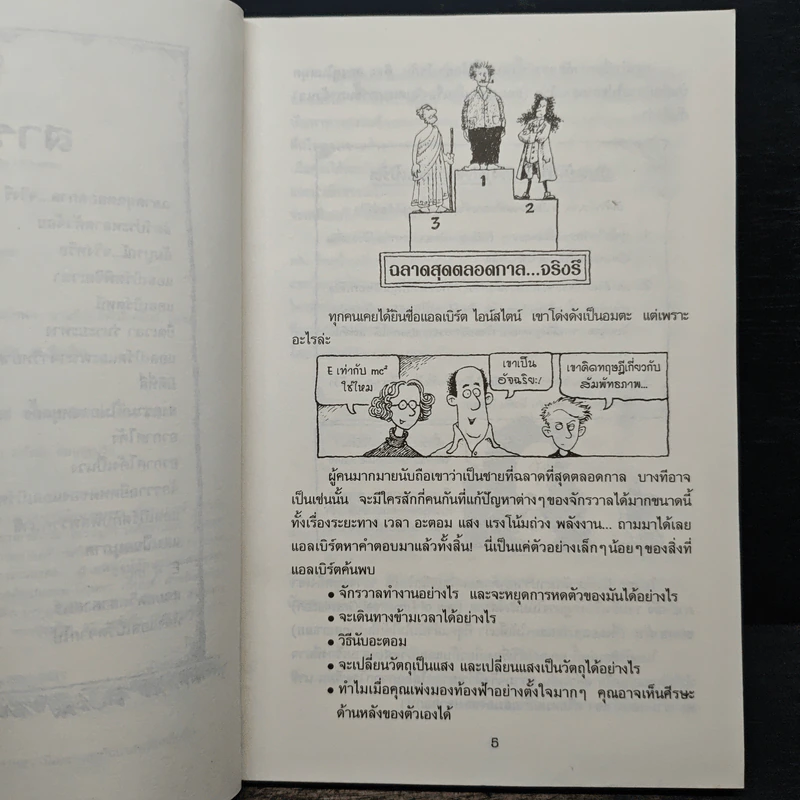 1
2
3
ฉลาดสุดตลอดกาล...จริงรึ
ทุกคนเคยได้ยินชื่อแอลเบิร์ต ไอน์สไตน์ เขาโด่งดังเป็นอมตะ แต่เพราะ
อะไรล่ะ
E เท่ากับ mc²
ใช่ไหม
เขาเป็น
อัจฉริยะ!
เขาคิดทฤษฎีเกี่ยวกับ
สัมพัทธภาพ...
ผู้คนมากมายนับถือเขาว่าเป็นชายที่ฉลาดที่สุดตลอดกาล บางทีอาจ
เป็นเช่นนั้น จะมีใครสักกี่คนกันที่แก้ปัญหาต่างๆของจักรวาลได้มากขนาดนี้
ทั้งเรื่องระยะทาง เวลา อะตอม แสง แรงโน้มถ่วง พลังงาน... ถามมาได้เลย
แอลเบิร์ตหาคำตอบมาแล้วทั้งสิ้น! นี่เป็นแค่ตัวอย่างเล็กๆน้อยๆของสิ่งที่
แอลเบิร์ตค้นพบ
● จักรวาลทำงานอย่างไร และจะหยุดการหดตัวของมันได้อย่างไร
● จะเดินทางข้ามเวลาได้อย่างไร
● วิธีนับอะตอม
● จะเปลี่ยนวัตถุเป็นแสง และเปลี่ยนแสงเป็นวัตถุได้อย่างไร
● ทำไมเมื่อคุณเพ่งมองท้องฟ้าอย่างตั้งใจมากๆ คุณอาจเห็นศีรษะ
ด้านหลังของตัวเองได้
5